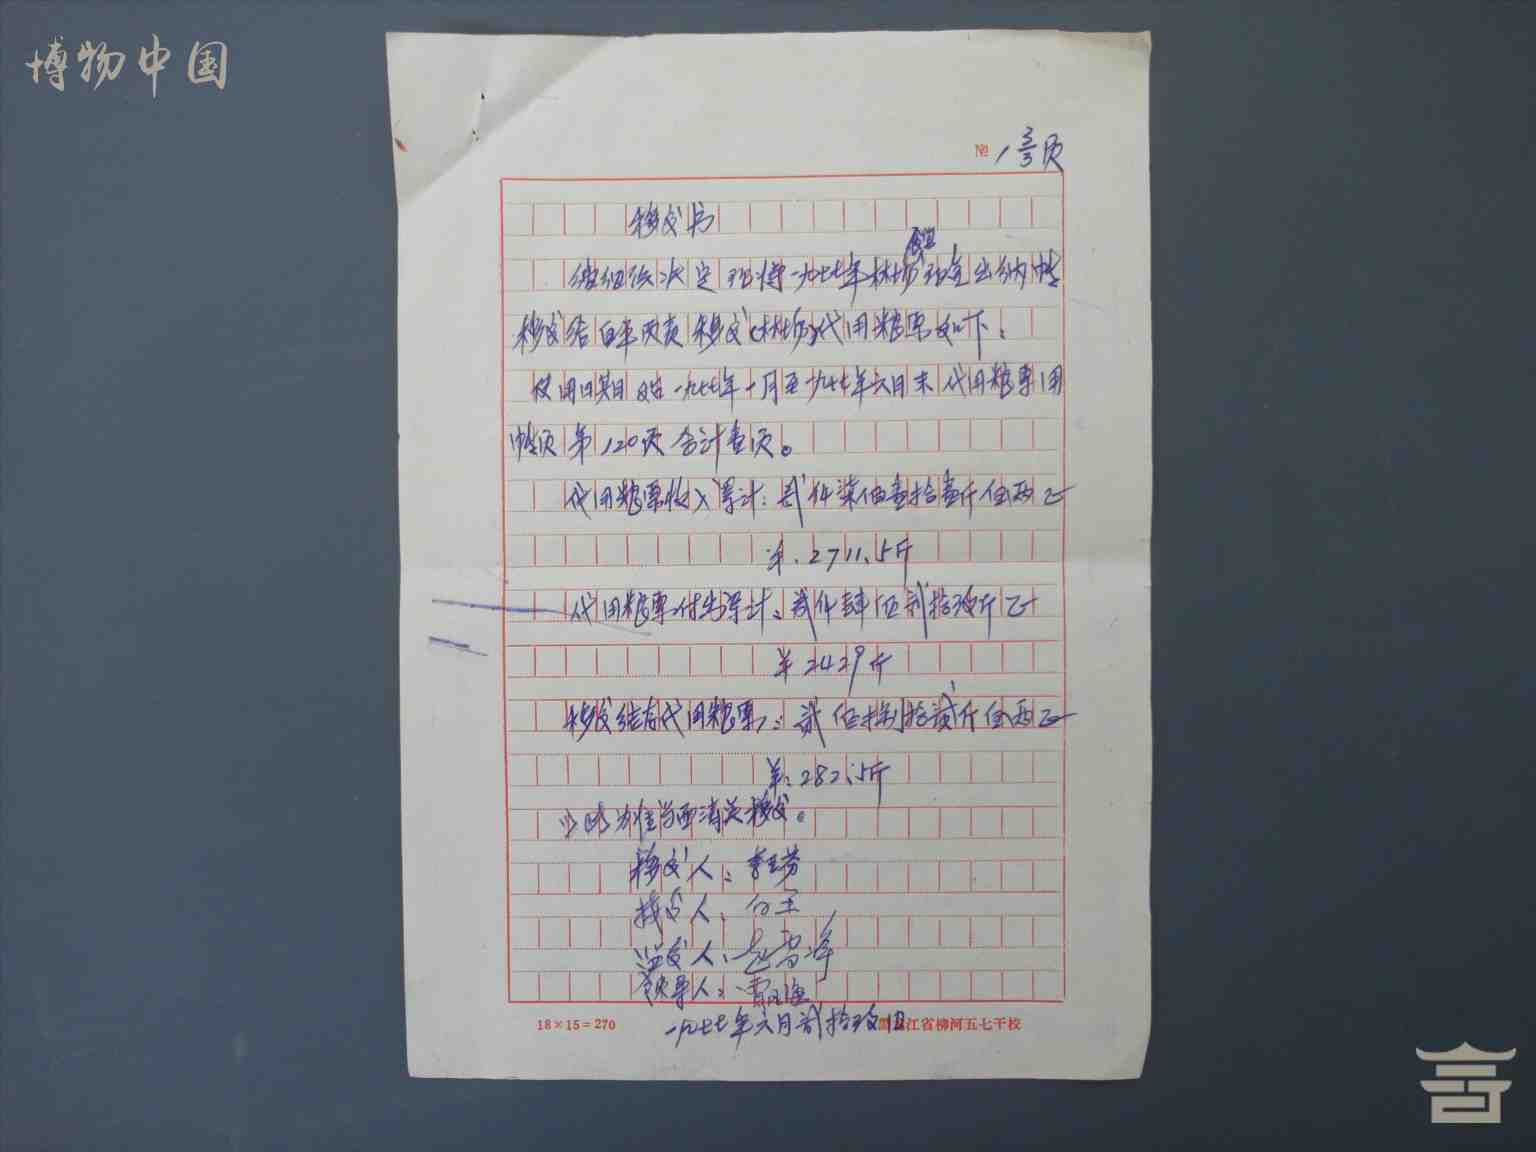 博物中国
№ 1 3/3页
移交书
经组织决定现将一九七七年林场现金出纳帐
移交给白平负责移交(林场)代用粮票如下：
使用日期自一九七七年一月至一九七七年六月末代用粮票用
帐页第120页合计壹页。
代用粮票收入累计：贰仟柒佰壹拾壹斤伍两正
羊.2711.5斤
代用粮票付出累计：贰仟肆佰贰拾玖斤正
羊2429斤
移交结存代用粮票：贰佰捌拾贰斤伍两正
羊：282.5斤
以此为准当面清点移交。
移交人：
接交人：
监交人：
领导人：
一九七七年六月贰拾玖日
18×15=270
黑龙江省柳河五七干校